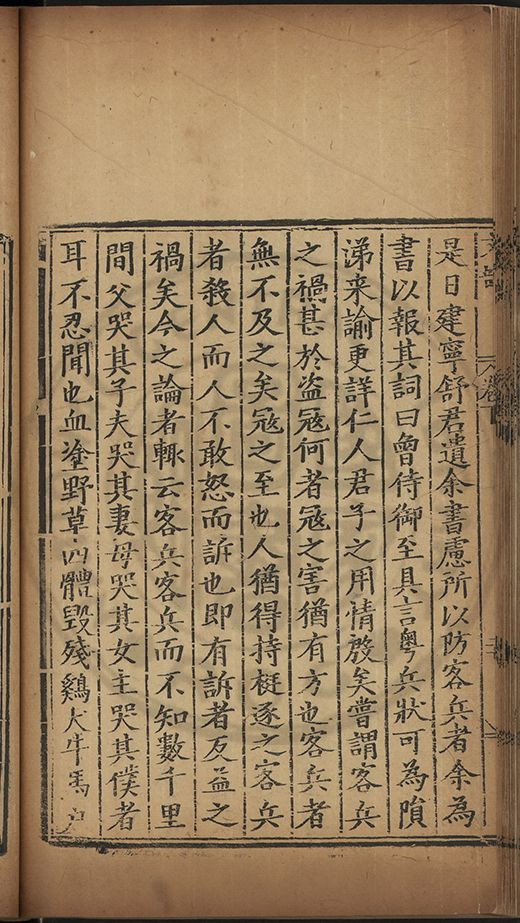 是日建寧舒君遺余書慮所以防客兵者余為
書以報其詞曰曾侍御至具言粵兵狀可為隕
涕来諭更詳仁人君子之用情殷矣嘗謂客兵
之禍甚於盗冦何者冦之害猶有方也客兵者
無不及之矣冦之至也人猶得持梃逐之客兵
者殺人而人不敢怒而訴也即有訴者反益之
禍矣今之論者輙云客兵客兵而不知數千里
間父哭其子夫哭其妻母哭其女主哭其僕者
耳不忍聞也血塗野草四體毁殘鷄犬牛馬